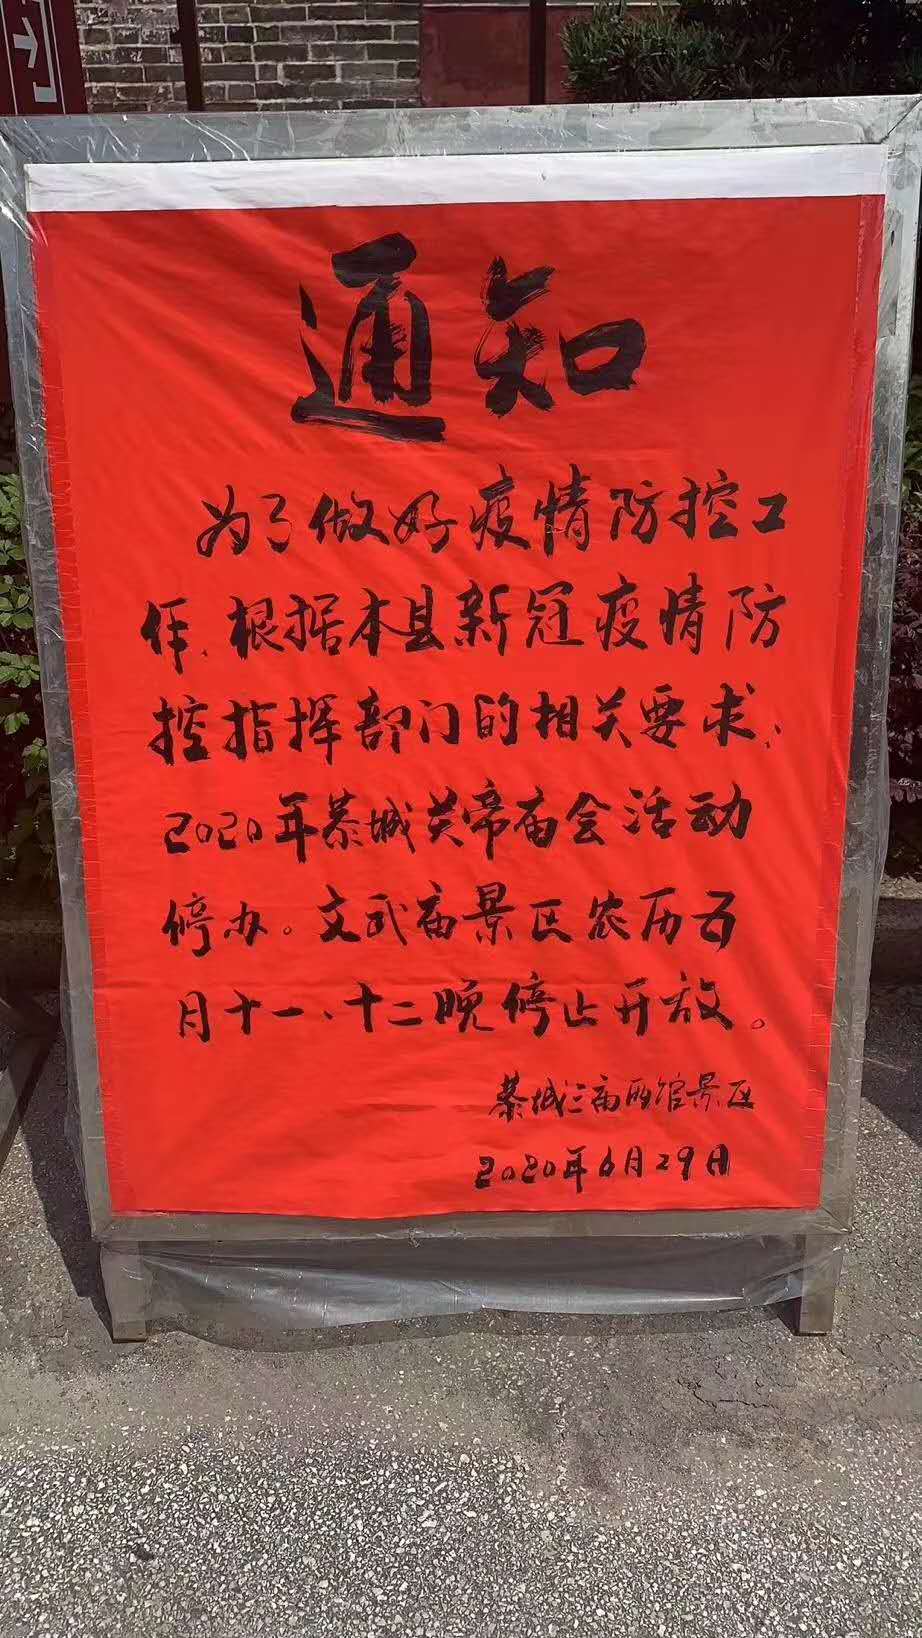 通知
为了做好疫情防控工
作、根据本县新冠疫情防
控指挥部门的相关要求、
2020年恭城关帝庙会活动
停办。文武庙景区农历五
月十一、十二晚停止开放。
恭城三庙两馆景区
2020年6月29日